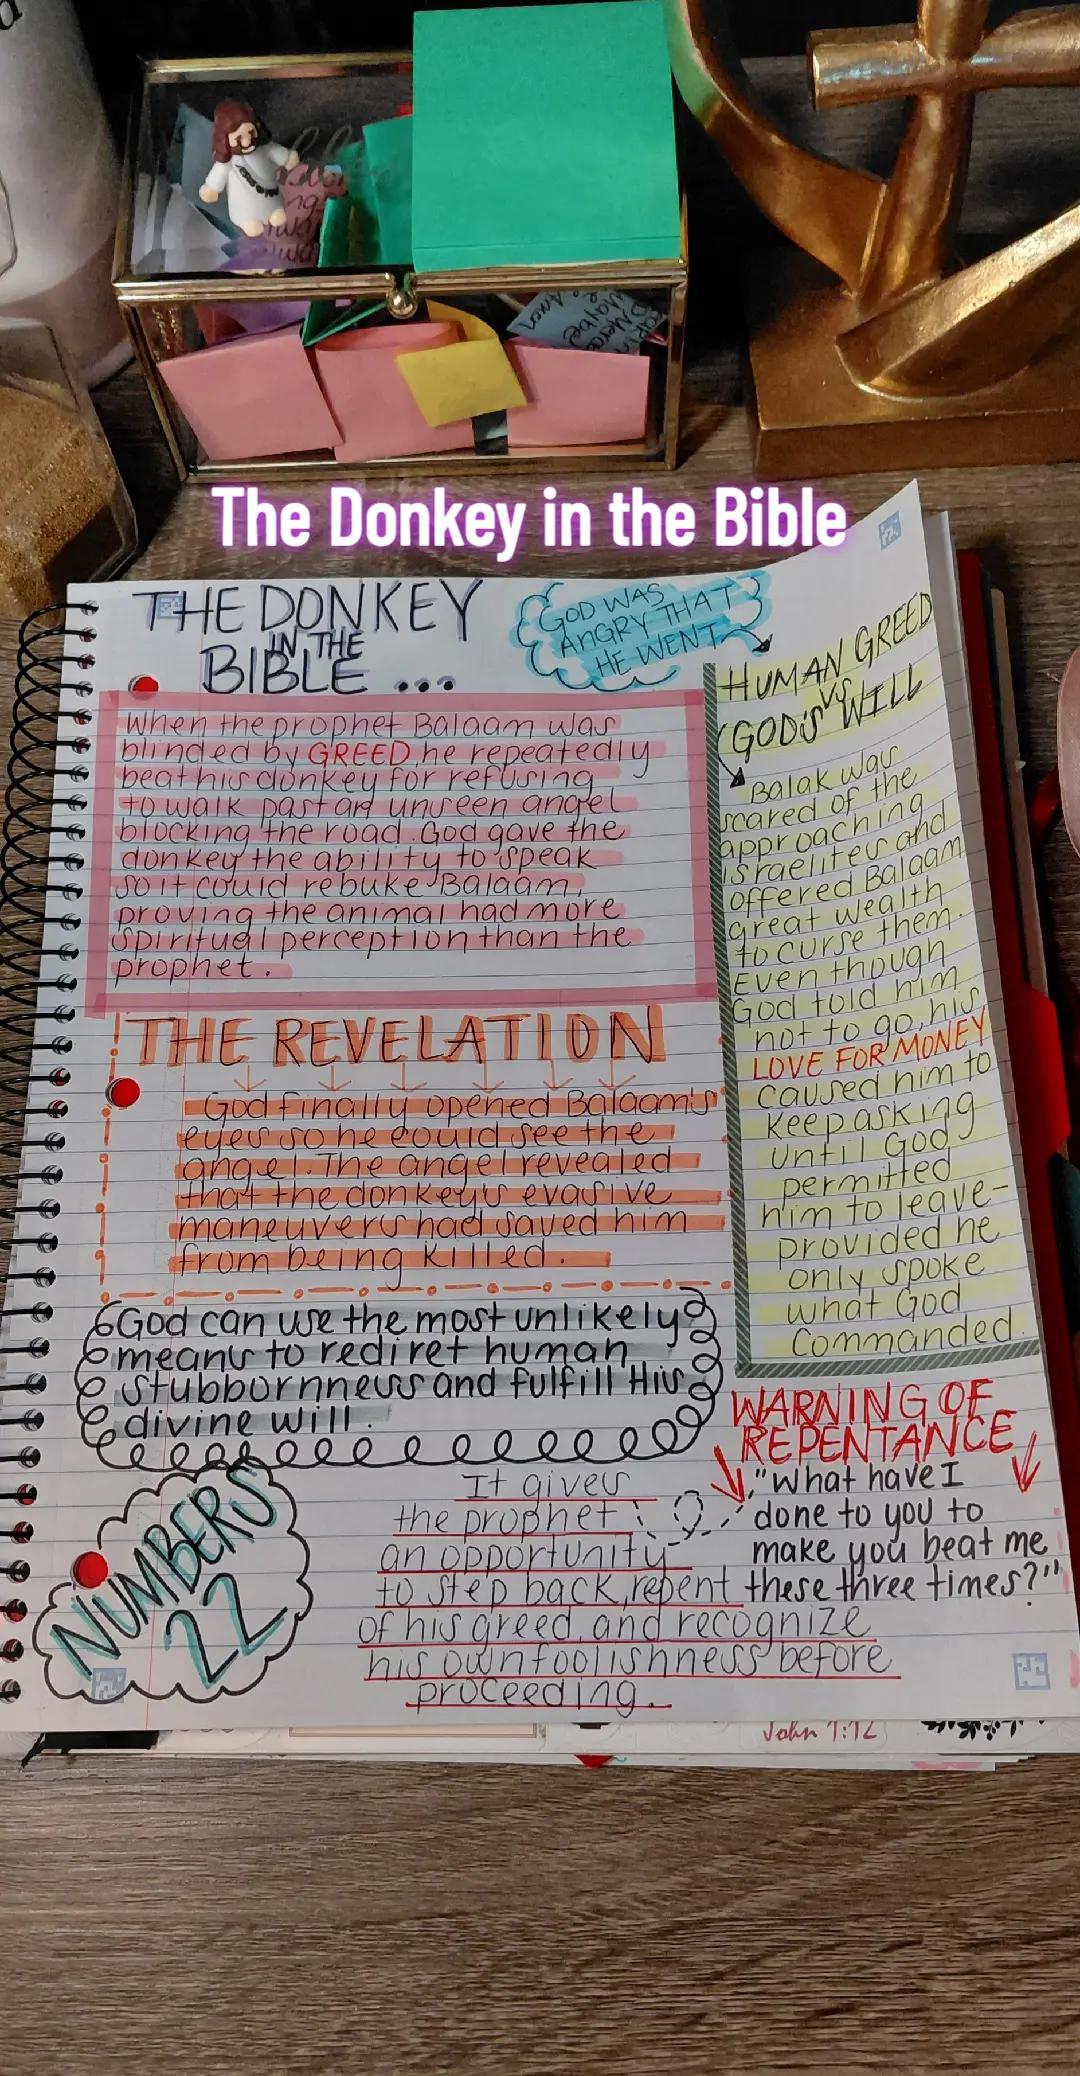 The Donkey in the Bible
THE DONKEY
IN THE
BIBLE...
GOD WAS
ANGRY THAT
HE WENT
When the prophet Balaam was
blinded by GREED, he repeatedly
beat his donkey for refusing
to walk past an unseen angel
blocking the road. God gave the
donkey the ability to speak
so it could rebuke Balaam,
proving the animal had more
spiritual perception than the
prophet.
HUMAN GREED
VS
GOD'S WILL
Balak was
scared of the
approaching
Israelites and
offered Balaam
great wealth
to curse them.
Even though
God told him
not to go, his
LOVE FOR MONEY
caused him to
keep asking
until God
permitted
him to leave-
provided he
only spoke
what God
Commanded.
THE REVELATION
God finally opened Balaam's
eyes so he could see the
angel. The angel revealed
that the donkey's evasive
maneuvers had saved him
from being killed.
God can use the most unlikely
means to rediret human
stubbornness and fulfill His
divine will.
NUMBERS
22
WARNING OF
REPENTANCE
"What have I
done to you to
make you beat me
these three times?"
It gives
the prophet
an opportunity
to step back, repent
of his greed, and recognize
his own foolishness before
proceeding.
John 1:12